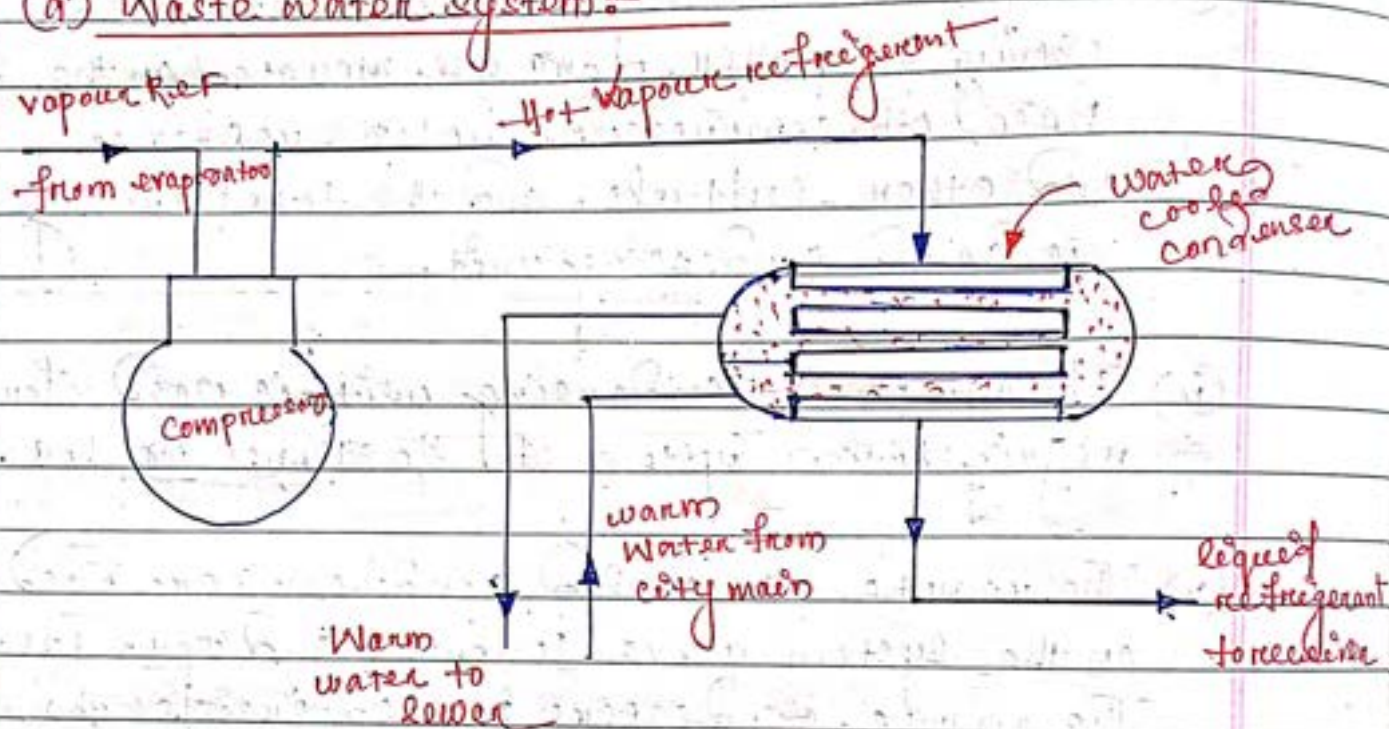 (a) Waste water system:-
vapour Ref.
from evaporatoo
Hot vapour refregerant
water
cooled
condenser
compressor
warm
water from
city main
Warm
water to
sewer
liquid
refregerant
to receiver